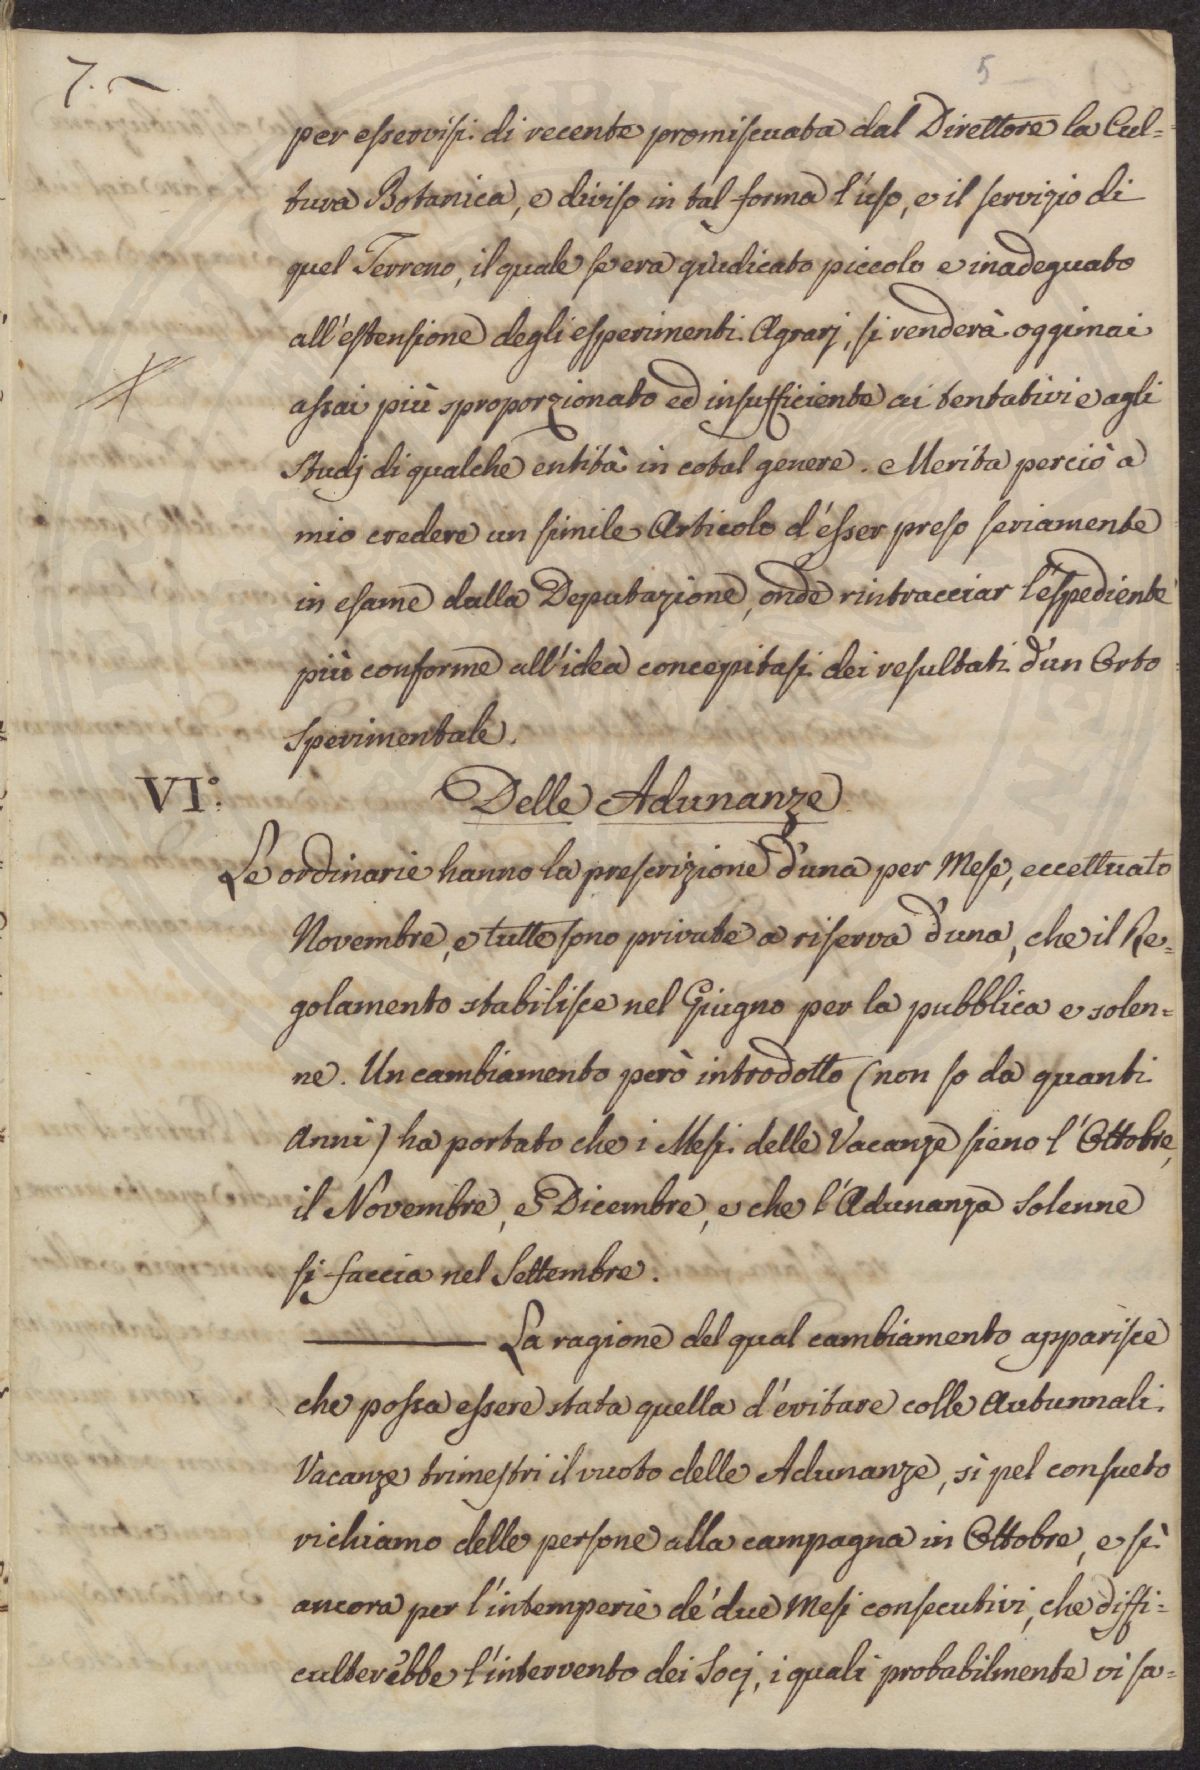 7.
5
per esservisi di recente promiscuata dal Direttore la Cul=
tura Botanica, e diviso in tal forma l'uso, e il servizio di
quel Terreno, il quale se era giudicato piccolo e inadeguato
all'estensione degli esperimenti Agrarj, si renderà oggimai
assai più sproporzionato ed insufficiente ai tentativi e agli
Studj di qualche entità in cotal genere. Merita perciò a
mio credere un simile Articolo d'esser preso seriamente
in esame dalla Deputazione, onde rintracciar l'espediente
più conforme all'idea concepitasi dei resultati d'un Orto
Sperimentale.
VI°. Delle Adunanze
Le ordinarie hanno la prescrizione d'una per Mese, eccettuato
Novembre, e tutte sono private a riserva d'una, che il Re=
golamento stabilisce nel Giugno per la pubblica e solen=
ne. Un cambiamento però introdotto (non so da quanti
Anni) ha portato che i Mesi delle Vacanze sieno l'Ottobre,
il Novembre, e Dicembre, e che l'Adunanza Solenne
si faccia nel Settembre.
La ragione del qual cambiamento apparisce
che possa essere stata quella d'evitare colle Autunnali
Vacanze trimestri il vuoto delle Adunanze, sì pel consueto
richiamo delle persone alla campagna in Ottobre, e sì
ancora per l'intemperie de' due Mesi consecutivi, che diffi=
culterebbe l'intervento dei Socj, i quali probabilmente vi sa=